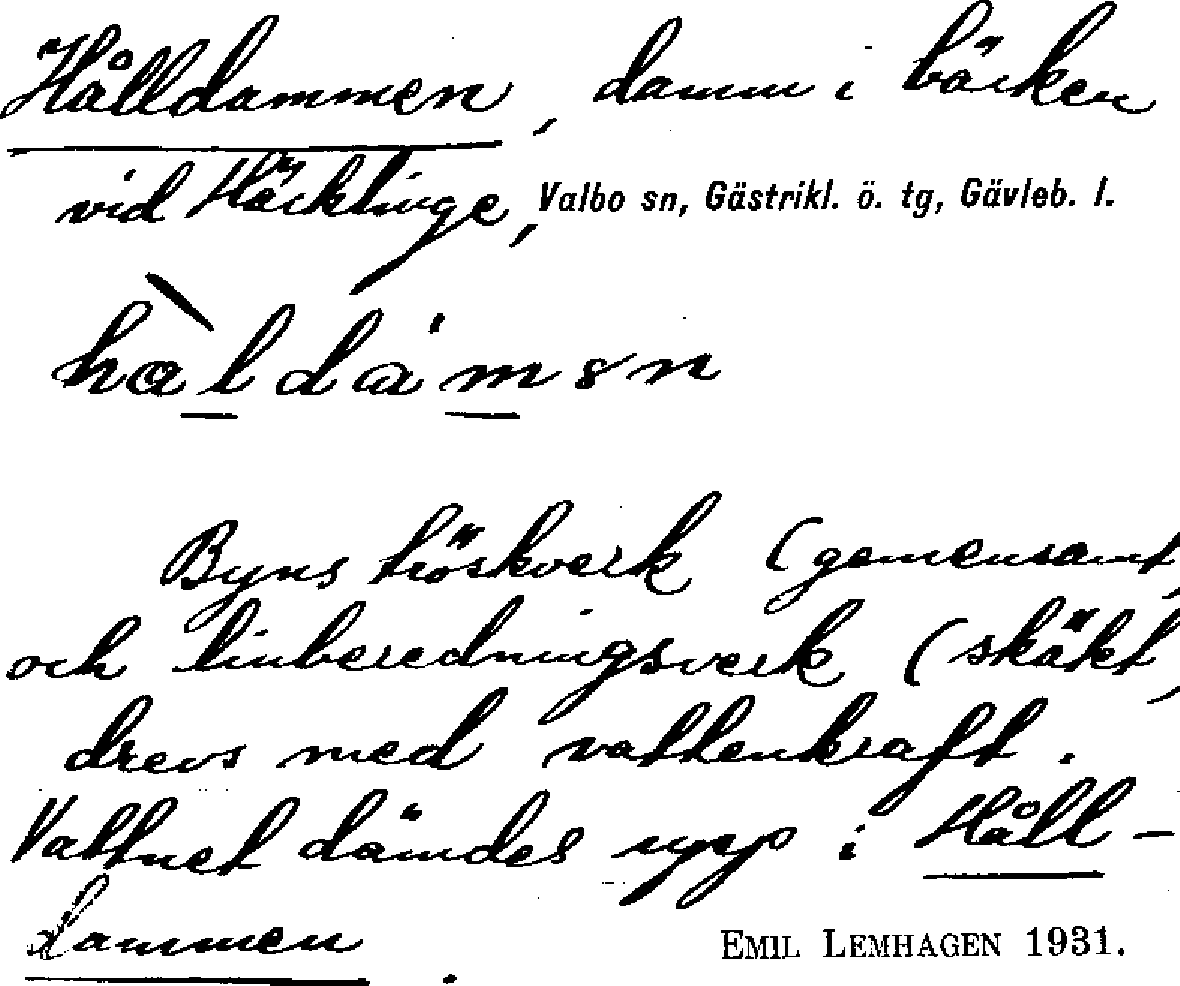 Hålldammen, damm i bäcken
vid Häcklinge, Valbo sn, Gästrikl. ö. tg, Gävleb. l.
Byns tröskverk (gemensamt,
och linberedningsverk (skäkt,
drevs med vattenkraft.
Vattnet dämdes upp i Håll-
dammen.
EMIL LEMHAGEN 1931.